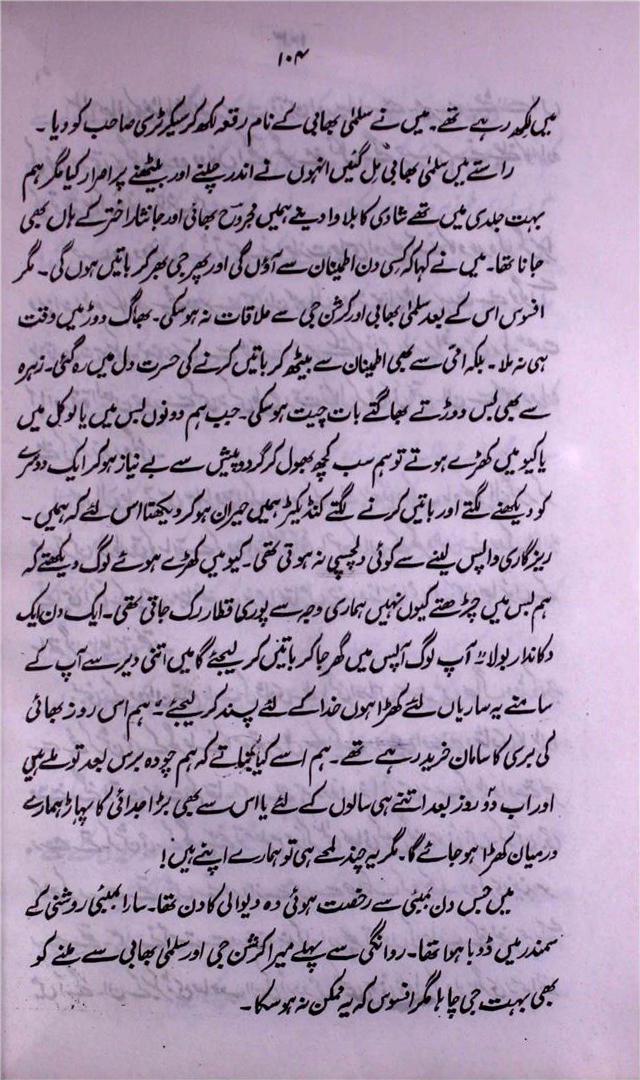 ۱۰۴
میں لکھ رہے تھے۔ میں نے سلمٰی بھابی کے نام رقعہ لکھ کر سیکرٹری صاحب کو دیا ۔
راستے میں سلمٰی بھابی مل گئیں انہوں نے اندر چلنے اور بیٹھنے پر اصرار کیا مگر ہم
بہت جلدی میں تھے شادی کا بلاوا دینے ہمیں مجروح بھائی اور جانثار اختر کے ہاں بھی
جانا تھا۔ میں نے کہا کہ کسی دن اطمینان سے آؤں گی اور پھر جی بھر کر باتیں ہوں گی۔ مگر
افسوس اس کے بعد سلمٰی بھابی اور کرشن جی سے ملاقات نہ ہوسکی۔ بھاگ دوڑ میں وقت
ہی نہ ملا۔ بلکہ امّی سے بھی اطمینان سے بیٹھ کر باتیں کرنے کی حسرت دل میں رہ گئی۔ زہرہ
سے بھی بس دوڑتے بھاگتے بات چیت ہوسکی۔ جب ہم دونوں بس میں یا لوکل میں
یا کیو میں کھڑے ہوتے تو ہم سب کچھ بھول کر گردوپیش سے بے نیاز ہوکر ایک دوسرے
کو دیکھنے لگتے اور باتیں کرنے لگتے کنڈیکڑ ہمیں حیران ہوکر دیکھتا اس لئے کہ ہمیں۔
ریزگاری واپس لینے سے کوئی دلچسپی نہ ہوتی تھی۔ کیو میں کھڑے ہوئے لوگ دیکھتے کہ
ہم بس میں چڑھتے کیوں نہیں ہماری وجہ سے پوری قطار رک جاتی تھی۔ ایک دن ایک
دکاندار بولا "آپ لوگ آپس میں گھر جاکر باتیں کر لیجئے گا میں اتنی دیر سے آپ کے
سامنے یہ ساریاں لئے کھڑا ہوں خدا کے لئے پسند کر لیجئے۔" ہم اس روز بھائی
کی بری کا سامان خرید رہے تھے۔ ہم اسے کیا بتاتے کہ ہم چودہ برس بعد تو ملے ہیں
اور اب دو روز بعد اتنے ہی سالوں کے لئے یا اس سے بھی بڑا جدائی کا پہاڑ ہمارے
درمیان کھڑا ہو جائے گا۔ مگر یہ چند لمحے ہی تو ہمارے اپنے ہیں!
میں جس دن بمبئی سے رخصت ہوئی وہ دیوالی کا دن تھا۔ سارا بمبئی روشنی کے
سمندر میں ڈوبا ہوا تھا۔ روانگی سے پہلے میرا کرشن جی اور سلمٰی بھابی سے ملنے کو
بھی بہت جی چاہا مگر افسوس کہ یہ ممکن نہ ہوسکا۔